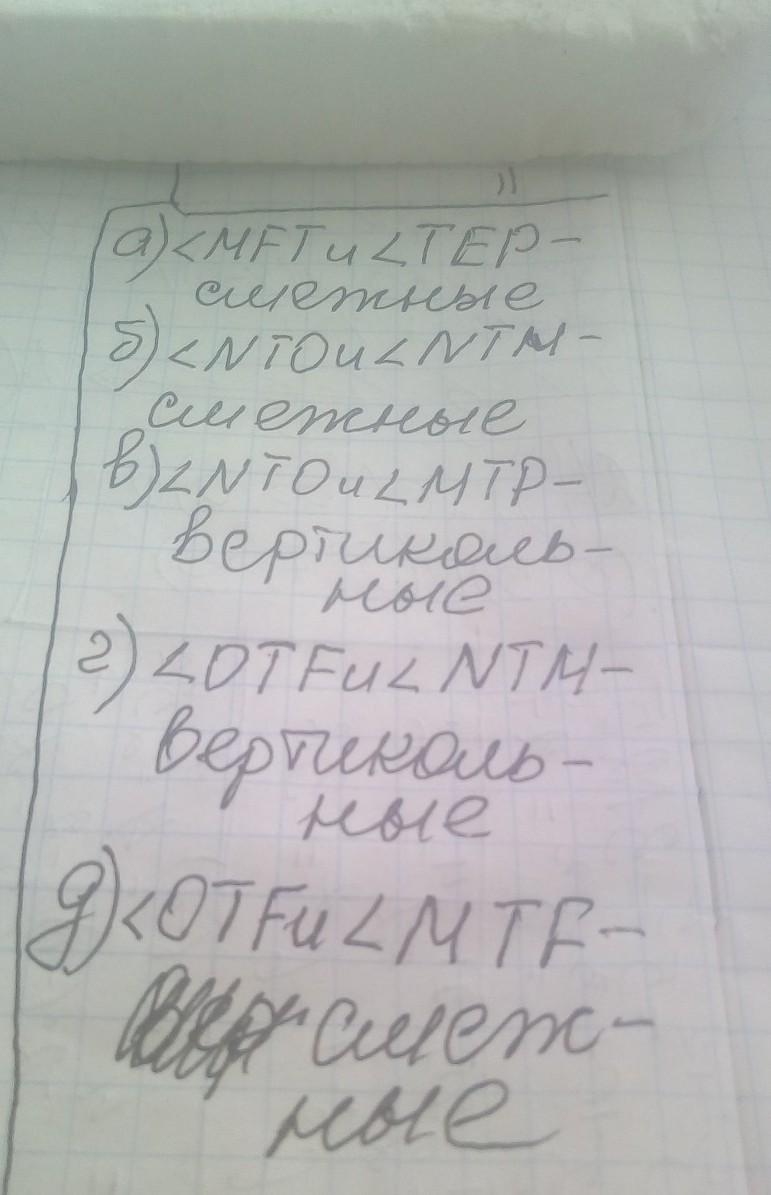 а) <MFT и <TEP –
смежные
б) <NTO и <NTM –
смежные
в) <NTO и <MTP –
вертиколь–
ные
г) <OTF и < NTM –
вертиколь–
ные
д) <OTF и < MTF –
смеж–
ные